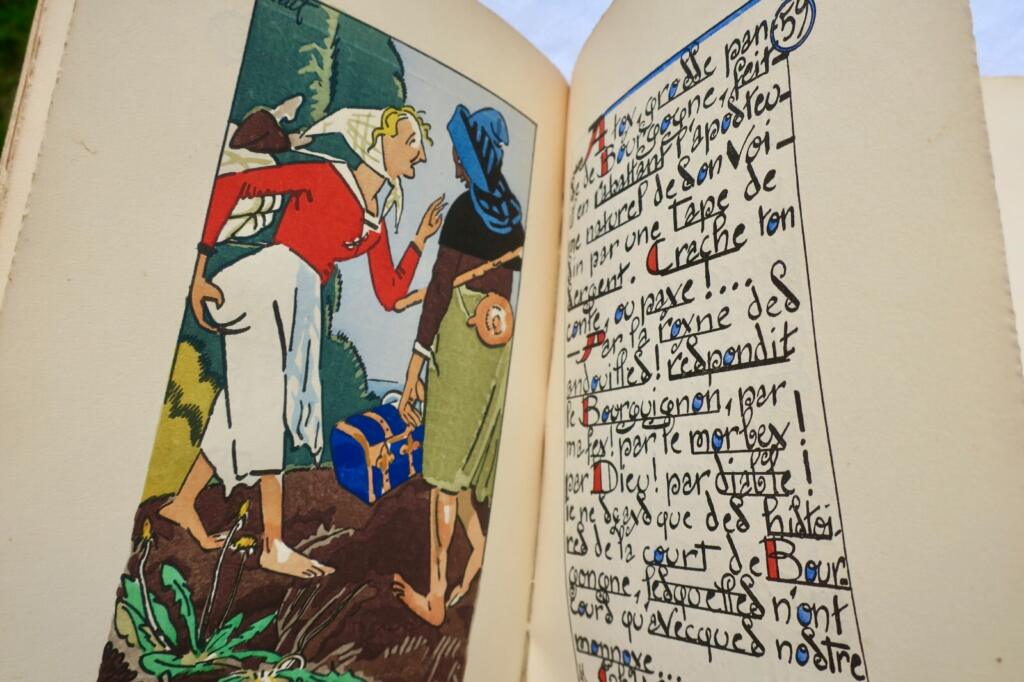 59
A toy, grosse pan
se de Bourgogne, feit-
il en rabattant l'aposteu-
me naturel de son voi-
sin par une tape de
sergent. Crache ton
conte, ou paye !...
– Par la royne des
andouilles ! respondit
le Bourguignon, par
ma fey ! par le morbey !
par Dieu ! par diable !
ie ne sçays que des histoi-
res de la court de Bour-
gongne, lesquelles n'ont
cours qu'avecques nostre
monnoye...